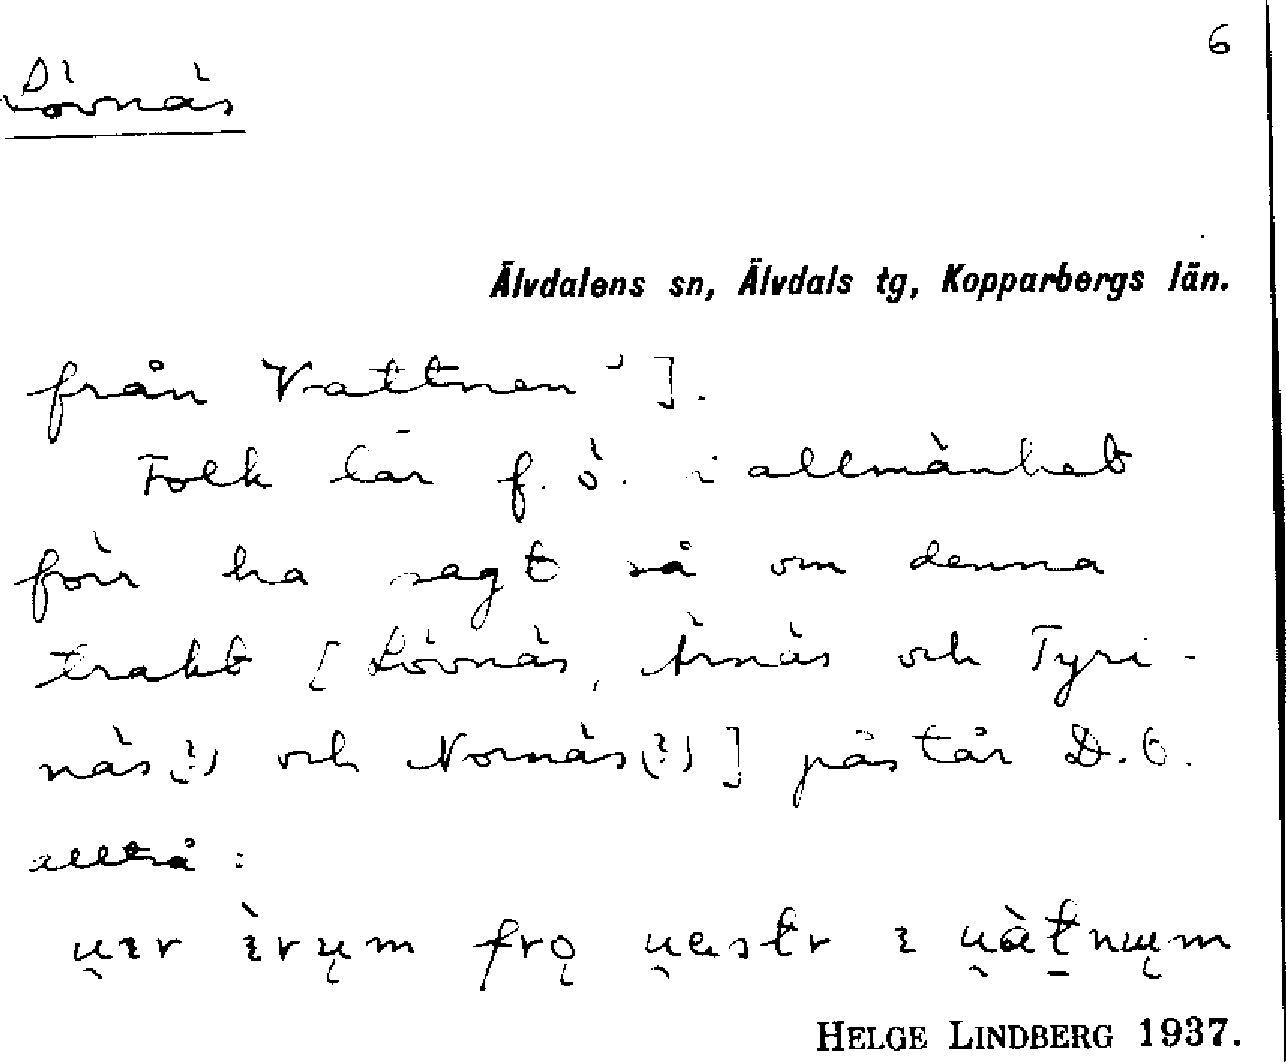 6
Lövnäs
Älvdalens sn, Älvdals tg, Kopparbergs län.
från Vattnen"].
Folk lär f. ö. i allmänhet
förr ha sagt så om denna
trakt [Lövnäs, Ärnäs och Tyri-
näs(?) och Nornäs(?)] påstår D.O.
alltså:
frǫ
HELGE LINDBERG 1937.